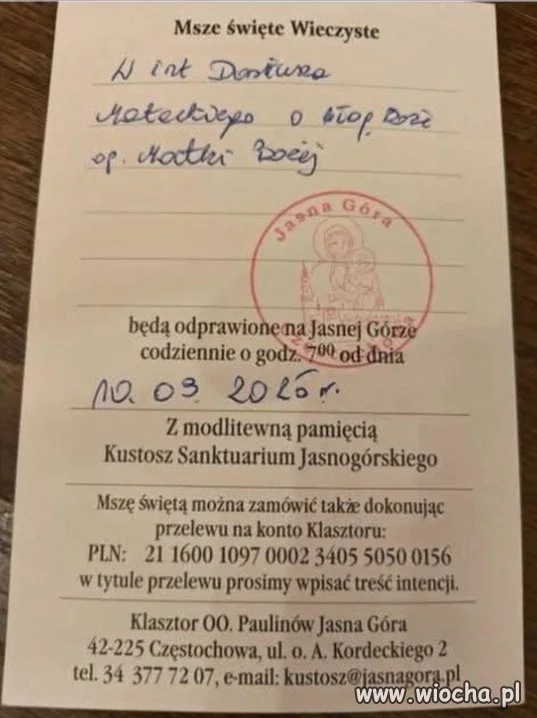 Msze święte Wieczyste
W int Dariusza
Mateckiego o błog. Boże
op. Matki Bożej
Jasna Góra
będą odprawione na Jasnej Górze
codziennie o godz. 7⁰⁰ od dnia
10. 03. 2025 r.
Z modlitewną pamięcią
Kustosz Sanktuarium Jasnogórskiego
Mszę świętą można zamówić także dokonując
przelewu na konto Klasztoru:
PLN: 21 1600 1097 0002 3405 5050 0156
w tytule przelewu prosimy wpisać treść intencji.
Klasztor OO. Paulinów Jasna Góra
42-225 Częstochowa, ul. o. A. Kordeckiego 2
tel. 34 377 72 07, e-mail: kustosz@jasnagora.pl
www.wiocha.pl